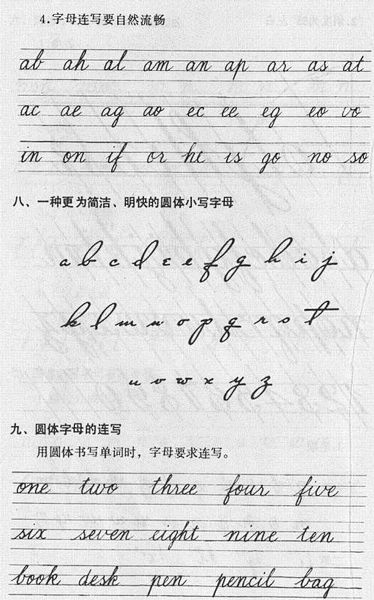 4.字母连写要自然流畅
ab ah al am an ap ar as at
ac ae ag ao ec ee eg eo vo
in on if or he is go no so
八、一种更为简洁、明快的圆体小写字母
a b c d c e f g h i j
k l m n o p q r s t
u v w x y z
九、圆体字母的连写
用圆体书写单词时，字母要求连写。
one two three four five
six seven eight nine ten
book desk pen pencil bag